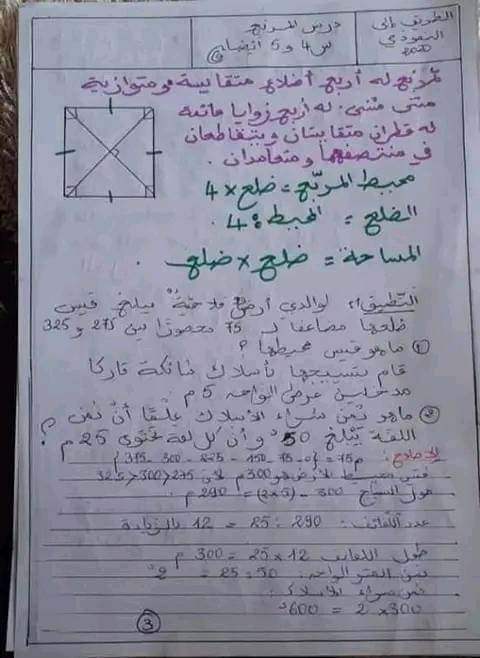 الظريف بالي
النموذجي
2020
درس المربع
س 4 و 5 ابتدائي
المربع له أربع أضلاع متقايسة ومتوازية
مثنى مثنى. له أربع زوايا قائمة
له قطران متقايسان ويتقاطعان
في منتصفهما ومتعامدان.
محيط المربع = ضلع × 4
الضلع = المحيط : 4
المساحة = ضلع × ضلع
التطبيق 1: لوالدي أرض فلاحية يبلغ قيس
ضلعها مضاعفا لـ 75 محصورا بين 275 و 325
1 ما هو قيس محيطها؟
قام بتسييجها بأسلاك شائكة تاركا
مدخلين عرض الواحد 5 م
2 ما هو ثمن شراء الأسلاك علما أن ثمن
اللفة يبلغ 50د وأن كل لفة تحتوي 25 م؟
الإصلاح: م75 = {0 - 75 - 150 - 225 - 300 - 375}
قيس محيط الأرض هو 300م لأن 275<300<325
طول السياج 300 - (5×2) = 290 م
عدد اللفائف: 290 : 25 = 12 بالزيادة
طول اللفائف 12 × 25 = 300 م
ثمن المتر الواحد: 50 : 25 = 2د
ثمن شراء الأسلاك:
300 × 2 = 600د
3